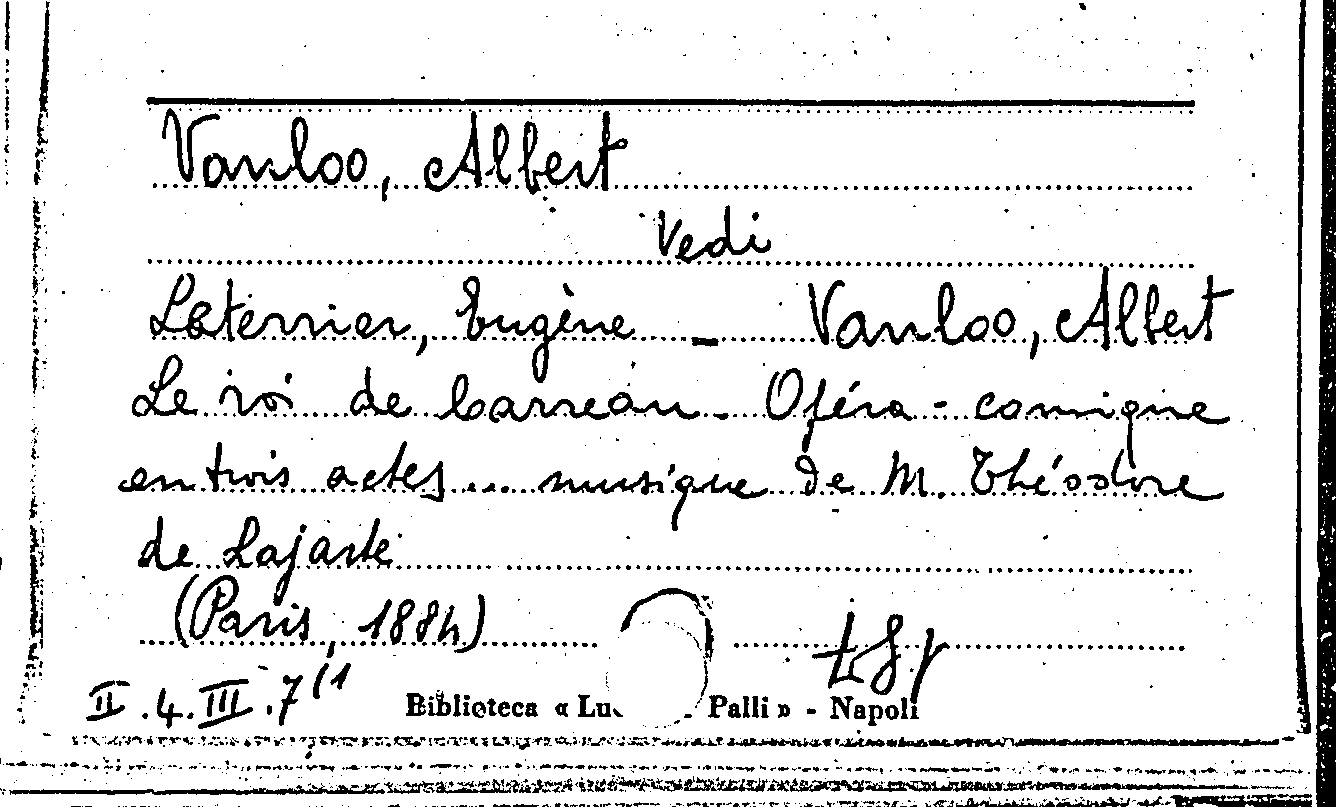 Vanloo, Albert
Vedi
Leterrier, Eugène - Vanloo, Albert
Le roi de Carreau - Opéra-comique
en trois actes ... musique de M. Théodore
de Lajarte
(Paris, 1884)
II.4.III.7(1
Biblioteca « Lu Palli » - Napoli